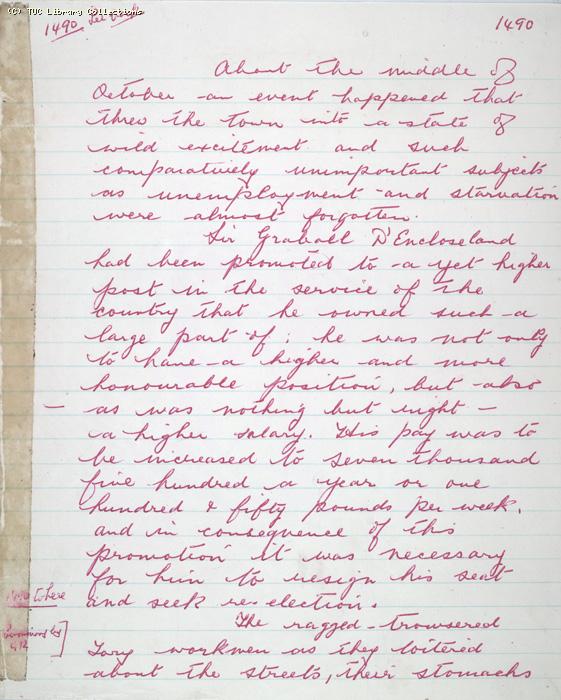 (C) TUC Library Collections
1490
1490
About the middle of
October an event happened that
threw the town into a state of
wild excitement and such
comparatively unimportant subjects
as unemployment and starvation
were almost forgotten.
Sir Graball D'Encloseland
had been promoted to a yet higher
post in the service of the
country that he owned such a
large part of; he was not only
to have a higher and more
honourable position, but also
— as was nothing but right —
a higher salary. His pay was to
be increased to seven thousand
five hundred a year or one
hundred & fifty pounds per week,
and in consequence of this
promotion it was necessary
for him to resign his seat
and seek re-election.
to here
The ragged-trousered
Tory workmen as they loitered
about the streets, their stomachs